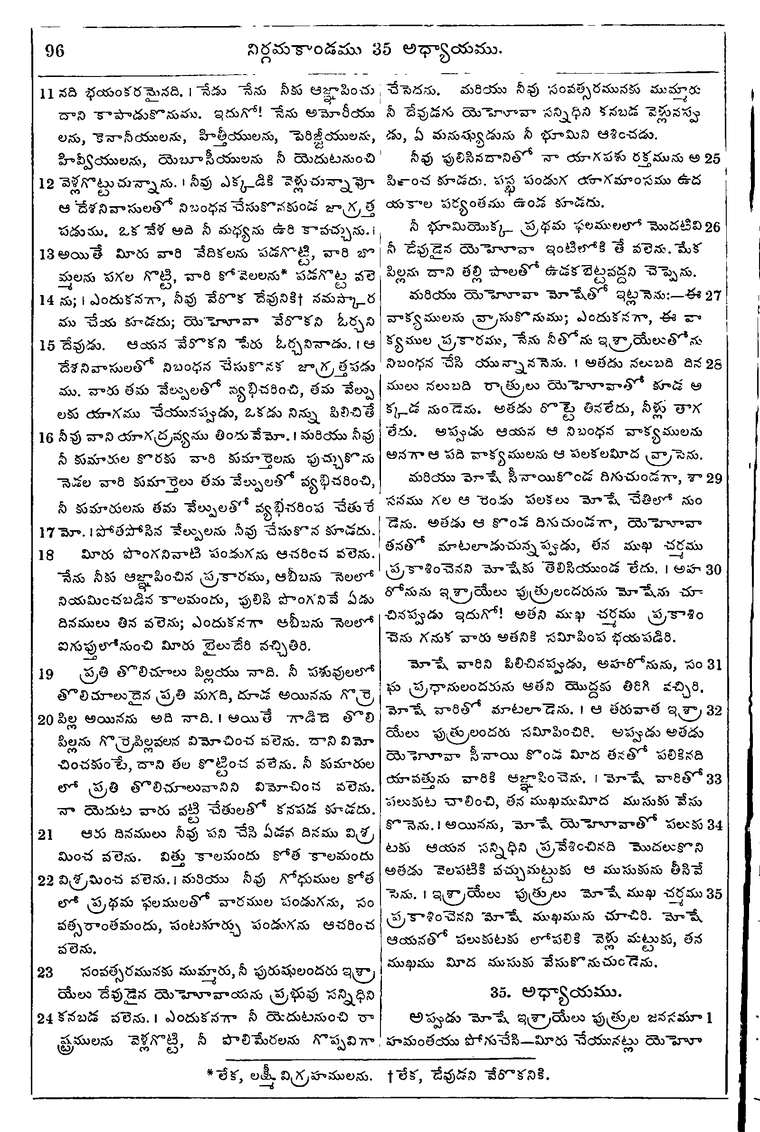 96 నిర్గమకాండము 35 అధ్యాయము.
11 నది భయంకరమైనది. । నేడు నేను నీకు ఆజ్ఞాపించు
దాని కాపాడుకొనుము. ఇదుగో! నేను అమోరీయు
లను, కెనానీయులను, హిత్తీయులను, పెరిజ్జీయులను,
హివ్వీయులను, యెబూసీయులను నీ యెదుటనుంచి
12 వెళ్లగొట్టుచున్నాను. । నీవు ఎక్కడికి వెళ్లుచున్నావో
ఆ దేశనివాసులతో నిబంధన చేసుకొనకుండ జాగ్రత్త
పడుము. ఒక వేళ అది నీ మధ్యను ఉరి కావచ్చును. ।
13 అయితే మీరు వారి వేదికలను పడగొట్టి, వారి బొ
మ్మలను పగల గొట్టి, వారి కోవెలలను* పడగొట్ట వలె
14 ను; । ఎందుకనగా, నీవు వేరొక దేవునికి† నమస్కార
ము చేయ కూడదు; యెహోవా వేరొకని ఓర్చని
15 దేవుడు. ఆయన వేరొకని పేరు ఓర్చనివాడు. । ఆ
దేశనివాసులతో నిబంధన చేసుకొనక జాగ్రత్తపడు
ము. వారు తమ వేల్పులతో వ్యభిచరించి, తమ వేల్పు
లకు యాగము చేయునప్పుడు, ఒకడు నిన్ను పిలిచితే
16 నీవు వాని యాగద్రవ్యము తిందువేమో. । మరియు నీవు
నీ కుమారుల కొరకు వారి కుమార్తెలను పుచ్చుకొను
నెడల వారి కుమార్తెలు తమ వేల్పులతో వ్యభిచరించి,
నీ కుమారులను తమ వేల్పులతో వ్యభిచరింప చేతురే
17 మో. । పోతపోసిన వేల్పులను నీవు చేసుకొన కూడదు.
18 మీరు పొంగనివాటి పండుగను ఆచరించ వలెను.
నేను నీకు ఆజ్ఞాపించిన ప్రకారము, ఆబీబను నెలలో
నియమించబడిన కాలమందు, పులిసి పొంగనివే ఏడు
దినములు తిన వలెను; ఎందుకనగా ఆబీబను నెలలో
ఐగుప్తులోనుంచి మీరు బైలుదేరి వచ్చితిరి.
19 ప్రతి తొలిచూలు పిల్లయు నాది. నీ పశువులలో
తొలిచూలుదైన ప్రతి మగది, దూడ అయినను గొర్రె
20 పిల్ల అయినను అది నాది. । అయితే గాడిదె తొలి
పిల్లను గొర్రెపిల్లవలన విమోచించ వలెను. దాని విమో
చించకుంటే, దాని తల కొట్టించ వలెను. నీ కుమారుల
లో ప్రతి తొలిచూలువానిని విమోచించ వలెను.
నా యెదుట వారు వట్టి చేతులతో కనపడ కూడదు.
21 ఆరు దినములు నీవు పని చేసి ఏడవ దినము విశ్ర
మించ వలెను. విత్తు కాలమందు కోత కాలమందు
22 విశ్రమించ వలెను. । మరియు నీవు గోధుముల కోత
లో ప్రథమ ఫలములతో వారముల పండుగను, సం
వత్సరాంతమందు, పంటకూర్చు పండుగను ఆచరించ
వలెను.
23 సంవత్సరమునకు ముమ్మారు, నీ పురుషులందరు ఇశ్రా
యేలు దేవుడైన యెహోవాయను ప్రభువు సన్నిధిని
24 కనబడ వలెను. । ఎందుకనగా నీ యెదుటనుంచి రా
ష్ట్రములను వెళ్లగొట్టి, నీ పొలిమేరలను గొప్పవిగా
చేసెదను. మరియు నీవు సంవత్సరమునకు ముమ్మారు
నీ దేవుడగు యెహోవా సన్నిధిని కనబడ వెళ్లునప్పు
డు, ఏ మనుష్యుడును నీ భూమిని ఆశించడు.
నీవు పులిసినదానితో నా యాగపశు రక్తమును అ 25
ర్పించ కూడదు. పస్ఖ పండుగ యాగమాంసము ఉద
యకాల పర్యంతము ఉండ కూడదు.
నీ భూమియొక్క ప్రథమ ఫలములలో మొదటివి 26
నీ దేవుడైన యెహోవా ఇంటిలోకి తే వలెను. మేక
పిల్లను దాని తల్లి పాలతో ఉడకబెట్టవద్దని చెప్పెను.
మరియు యెహోవా మోషేతో ఇట్లనెను:—ఈ 27
వాక్యములను వ్రాసుకొనుము; ఎందుకనగా, ఈ వా
క్యముల ప్రకారము, నేను నీతోను ఇశ్రాయేలుతోను
నిబంధన చేసి యున్నాననెను. । అతడు నలుబది దిన 28
ములు నలుబది రాత్రులు యెహోవాతో కూడ అ
క్కడ నుండెను. అతడు రొట్టె తినలేదు, నీళ్లు తాగ
లేదు. అప్పుడు ఆయన ఆ నిబంధన వాక్యములను
అనగా ఆ పది వాక్యములను ఆ పలకలమీద వ్రాసెను.
మరియు మోషే సీనాయికొండ దిగుచుండగా, శా 29
సనము గల ఆ రెండు పలకలు మోషే చేతిలో నుం
డెను. అతడు ఆ కొండ దిగుచుండగా, యెహోవా
తనతో మాటలాడుచున్నప్పుడు, తన ముఖ చర్మము
ప్రకాశించెనని మోషేకు తెలిసియుండ లేదు. । అహ 30
రోనును ఇశ్రాయేలు పుత్రులందరును మోషేను చూ
చినప్పుడు ఇదుగో! అతని ముఖ చర్మము ప్రకాశిం
చెను గనుక వారు అతనికి సమీపింప భయపడిరి.
మోషే వారిని పిలిచినప్పుడు, అహరోనును, సం 31
ఘ ప్రధానులందరును అతని యొద్దకు తిరిగి వచ్చిరి.
మోషే వారితో మాటలాడెను. । ఆ తరువాత ఇశ్రా 32
యేలు పుత్రులందరు సమీపించిరి. అప్పుడు అతడు
యెహోవా సీనాయి కొండ మీద తనతో పలికినది
యావత్తును వారికి ఆజ్ఞాపించెను. । మోషే వారితో 33
పలుకుట చాలించి, తన ముఖముమీద ముసుకు వేసు
కొనెను. । అయినను, మోషే యెహోవాతో పలుకు 34
టకు ఆయన సన్నిధిని ప్రవేశించినది మొదలుకొని
అతడు వెలపటికి వచ్చుమట్టుకు ఆ ముసుకును తీసివే
సెను. । ఇశ్రాయేలు పుత్రులు మోషే ముఖ చర్మము 35
ప్రకాశించెనని మోషే ముఖమును చూచిరి. మోషే
ఆయనతో పలుకుటకు లోపలికి వెళ్లు మట్టుకు, తన
ముఖము మీద ముసుకు వేసుకొనుచుండెను.
35. అధ్యాయము.
అప్పుడు మోషే ఇశ్రాయేలు పుత్రుల జనసమూ 1
హమంతయు పోగుచేసి—మీరు చేయునట్లు యెహో
* లేక, లక్ష్మీ విగ్రహములను. † లేక, దేవుడని వేరొకనికి.